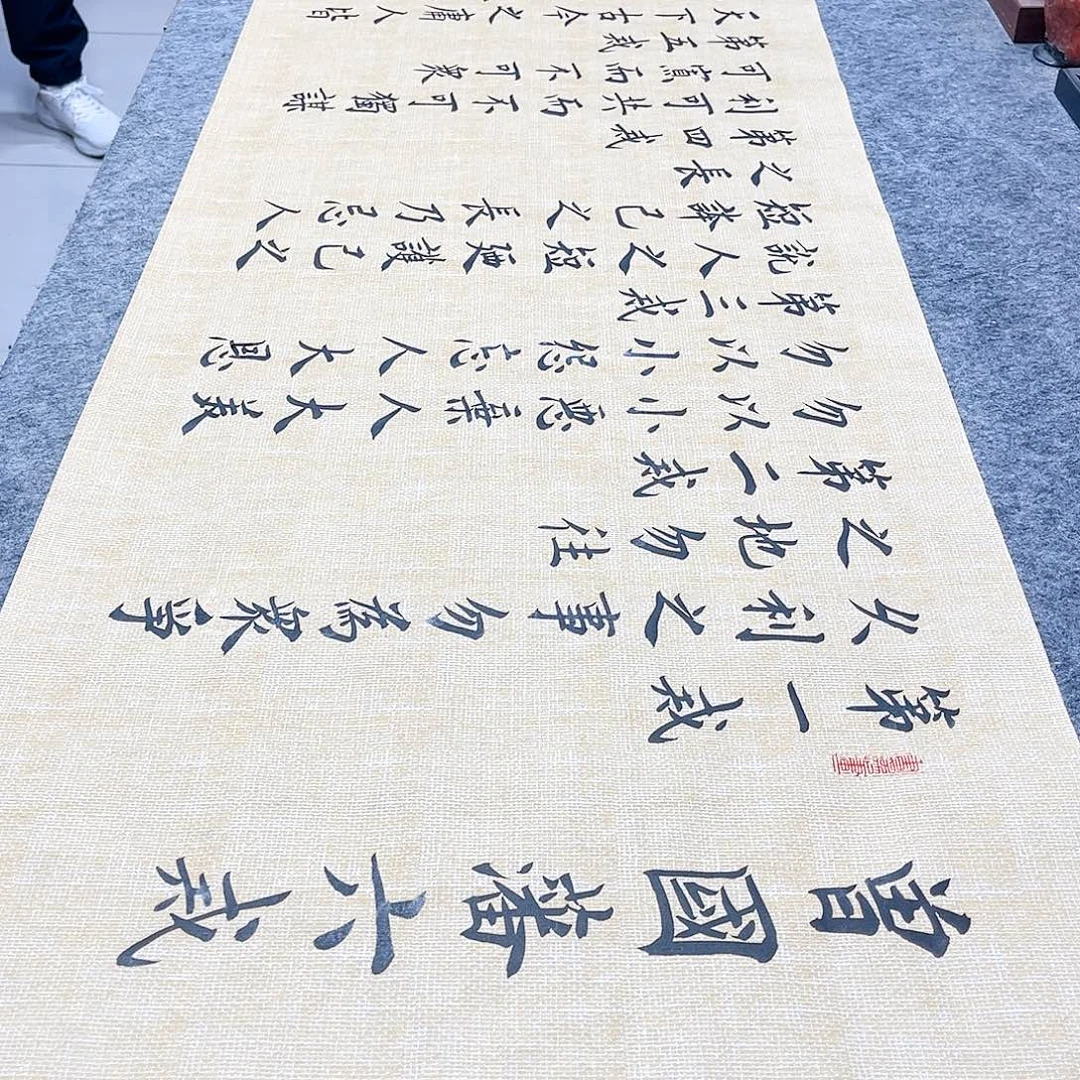 曾國藩六戒
第一戒
久利之事勿為眾爭
之地勿往
第二戒
勿以小惡棄人大義
勿以小怨忘人大恩
第三戒
說人之短廼護己之
短誇己之長乃忌人
之長
第四戒
利可共而不可獨謀
可寡而不可衆
第五戒
天下古今之庸人皆